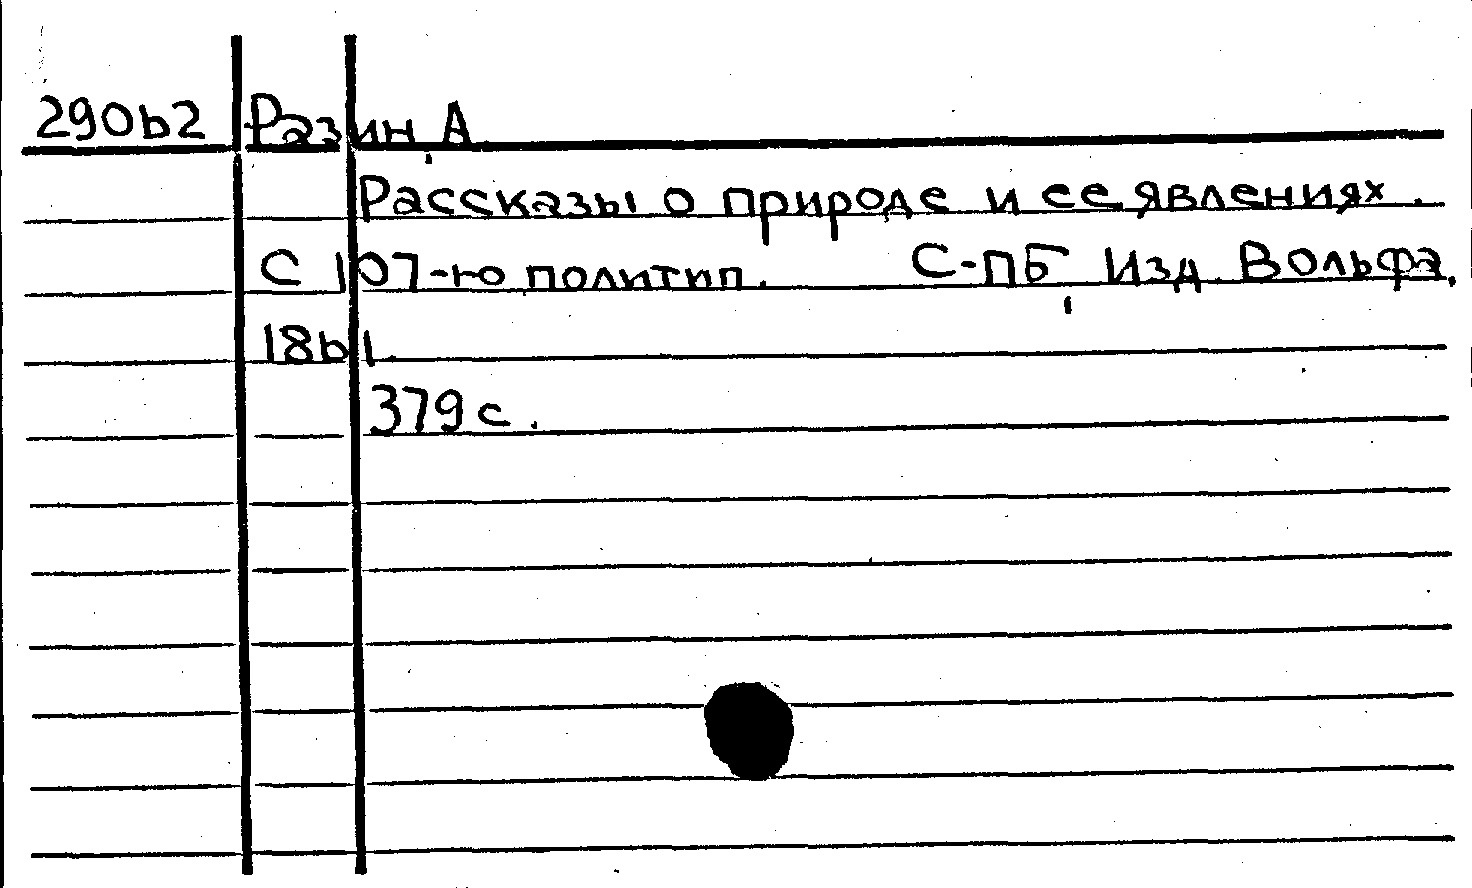 29062 Разин, А.
Рассказы о природе и ее явлениях.
С 107-ю политип. С-ПБ, Изд. Вольфа,
1861.
379 с.